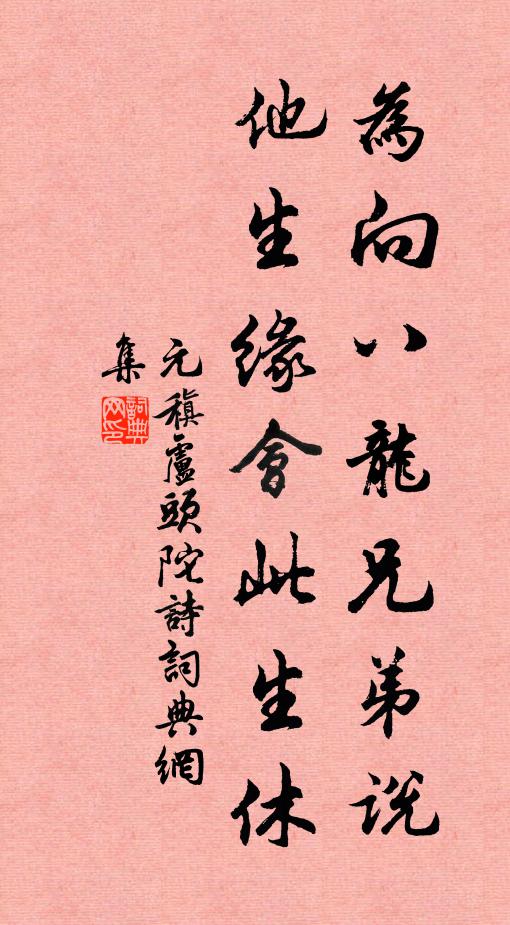 為向八龍兄弟說
他生緣會此生休
元稹盧頭陀詩詞典網
集
詞典網印